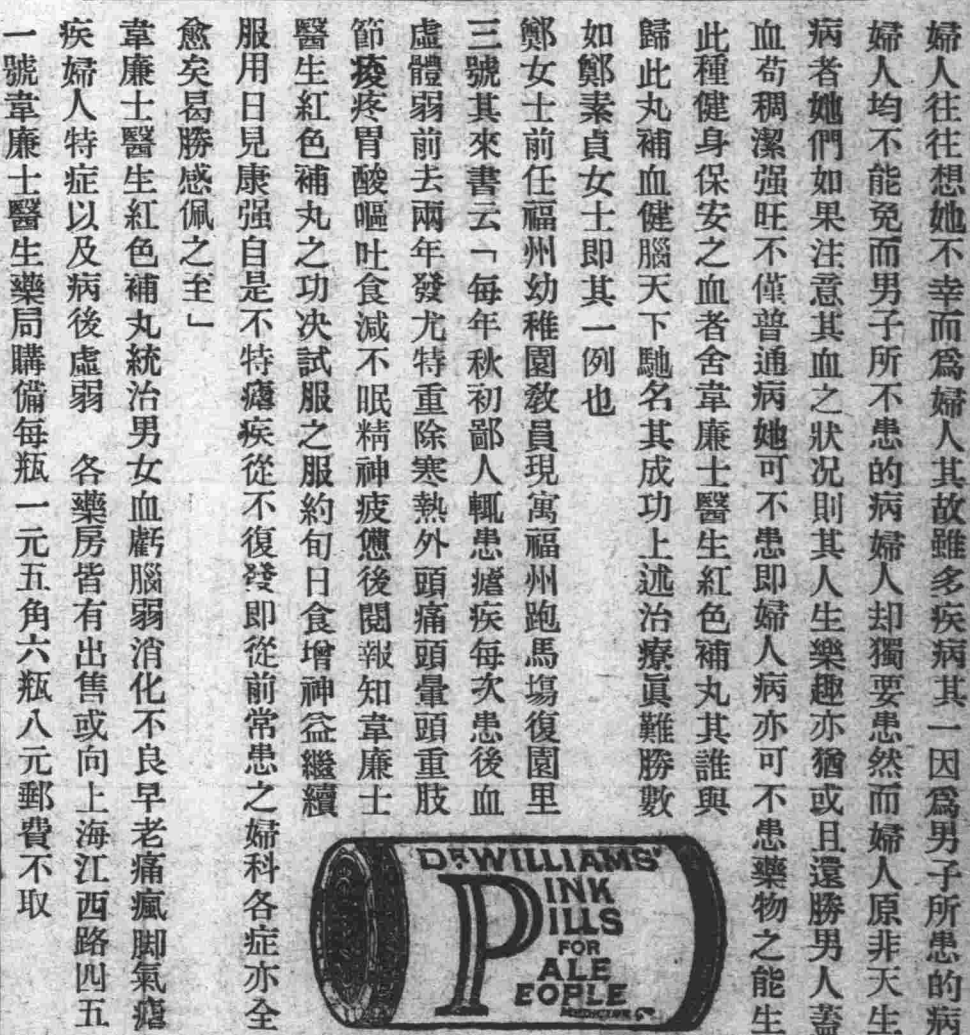 婦人往往想她不幸而爲婦人其故雖多疾病其一因爲男子所患的病
婦人均不能免而男子所不患的病婦人却獨要患然而婦人原非天生
病者她們如果注意其血之狀況則其人生樂趣亦猶或且還勝男人蓋
血苟稠潔强旺不僅普通病她可不患即婦人病亦可不患藥物之能生
此種健身保安之血者舍韋廉士醫生紅色補丸其誰與
歸此丸補血健腦天下馳名其成功上述治療眞難勝數
如鄭素貞女士即其一例也
鄭女士前任福州幼稚園敎員現寓福州跑馬塲復園里
三號其來書云「每年秋初鄙人輒患瘧疾每次患後血
虛體弱前去兩年發尤特重除寒熱外頭痛頭暈頭重肢
節痠疼胃酸嘔吐食減不眠精神疲憊後閱報知韋廉士
醫生紅色補丸之功决試服之服約旬日食增神益繼續
服用日見康强自是不特瘧疾從不復發即從前常患之婦科各症亦全
愈矣曷勝感佩之至」
韋廉士醫生紅色補丸統治男女血虧腦弱消化不良早老痛瘋脚氣瘧
疾婦人特症以及病後虛弱　各藥房皆有出售或向上海江西路四五
一號韋廉士醫生藥局購備每瓶一元五角六瓶八元郵費不取
DR WILLIAMS'
PINK
PILLS
FOR
PALE
PEOPLE
MEDICINE Co.